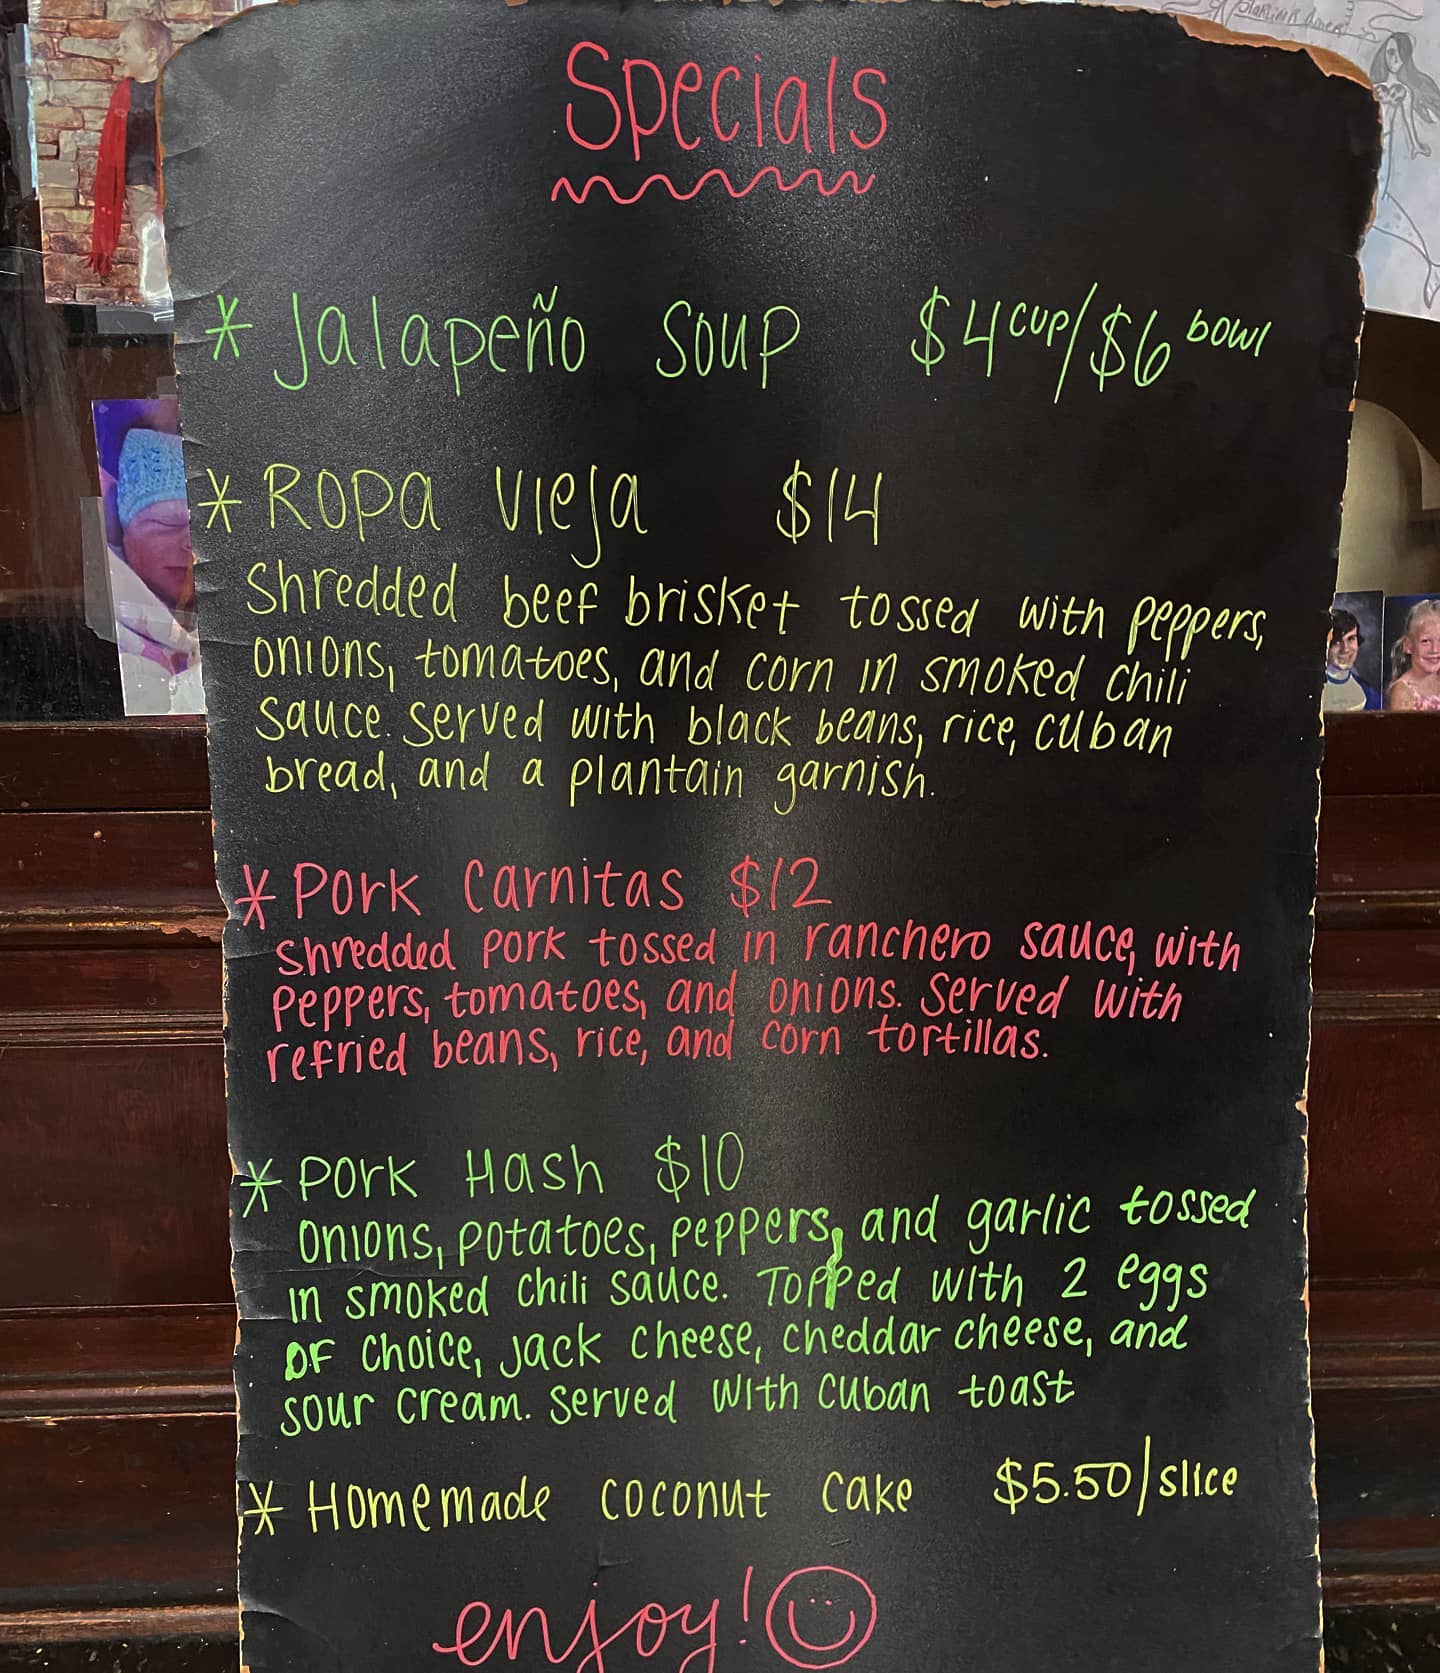 Specials
* Jalapeño Soup $4 cup/$6 bowl
* Ropa Vieja $14
Shredded beef brisket tossed with peppers,
onions, tomatoes, and corn in smoked chili
sauce. Served with black beans, rice, cuban
bread, and a plantain garnish.
* Pork Carnitas $12
Shredded pork tossed in ranchero sauce, with
peppers, tomatoes, and onions. Served with
refried beans, rice, and corn tortillas.
* Pork Hash $10
onions, potatoes, peppers, and garlic tossed
in smoked chili sauce. Topped with 2 eggs
of choice, jack cheese, cheddar cheese, and
sour cream. Served with cuban toast
* Homemade coconut cake $5.50/slice
enjoy!